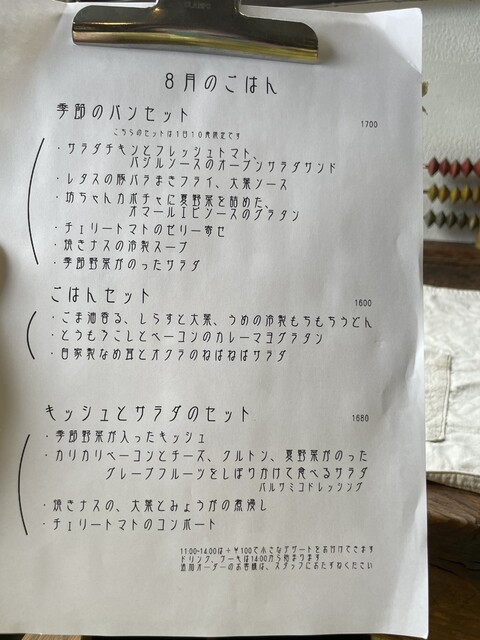 8月のごはん
季節のパンセット 1700
こちらのセットは1日10食限定です
・サラダチキンとフレッシュトマト、
バジルソースのオープンサラダサンド
・レタスの豚バラまきフライ、大葉ソース
・坊ちゃんカボチャに夏野菜を詰めた、
オマールエビソースのグラタン
・チェリートマトのゼリー寄せ
・焼きナスの冷製スープ
・季節野菜がのったサラダ
ごはんセット 1600
・ごま油香る、しらすと大葉、うめの冷製もちもちうどん
・とうもろこしとベーコンのカレーマヨグラタン
・自家製なめ茸とオクラのねばねばサラダ
キッシュとサラダのセット 1680
・季節野菜が入ったキッシュ
・カリカリベーコンとチーズ、クルトン、夏野菜がのった
グレープフルーツをしぼりかけて食べるサラダ
バルサミコドレッシング
・焼きナスの、大葉とみょうがの煮浸し
・チェリートマトのコンポート
11:00-14:00は＋￥100で小さなデザートをおつけできます
ドリンク、ケーキは14:00から始まります
追加オーダーのお客様は、スタッフにおたずねください